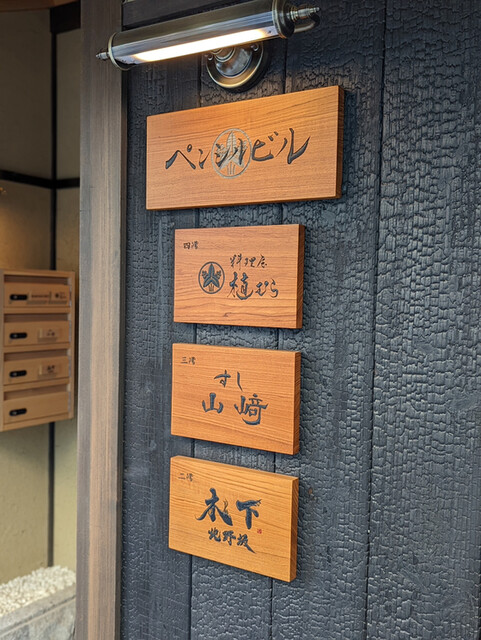 ペンシルビル
四階
料理屋
植むら
三階
すし
山﨑
二階
木下
北野坂